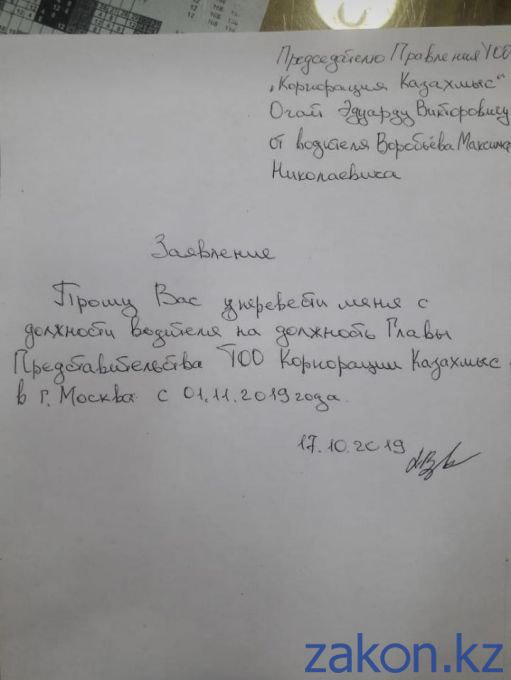 Председателю Правления ТОО
„Корпорация Казахмыс“
Огай Эдуарду Викторовичу
от водителя Воробьёва Максима
Николаевича
Заявление
Прошу Вас перевести меня с
должности водителя на должность Главы
Представительства ТОО Корпорации Казахмыс
в г. Москва с 01.11.2019 года.
17.10.2019
zakon.kz